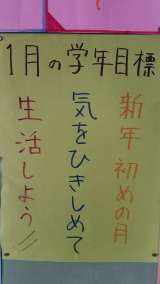 1月の学年目標
新年初めの月
気をひきしめて
生活しよう